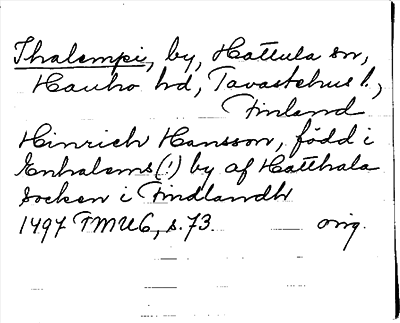 Thalempi, by, Hattula sn,
Hauho hd, Tavastehus l.,
Finland
Hinrich Hansson, född i
Enhalems (!) by af Hatthala
Socken i Findlandh
1497 TMU6, s. 73. orig.